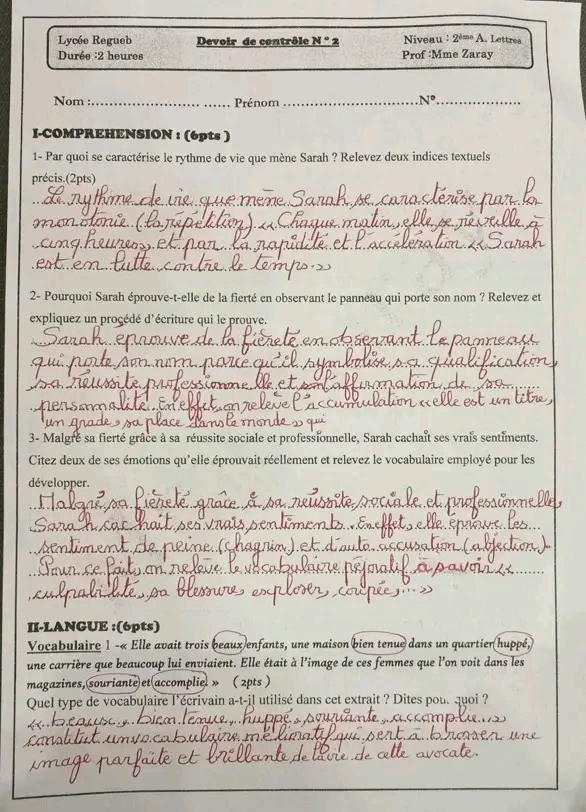 Lycée Regueb
Durée :2 heures
Devoir de contrôle N° 2
Niveau : 2ème A. Lettres
Prof :Mme Zaray
Nom :.................................. Prénom .................................N°.....................
I-COMPREHENSION : (6pts )
1- Par quoi se caractérise le rythme de vie que mène Sarah ? Relevez deux indices textuels
précis.(2pts)
Le rythme de vie que mène Sarah se caractérise par la
monotonie (la répétition) « Chaque matin, elle se réveille à
cinq heures » et par la rapidité et l'accélération « Sarah
est en lutte contre le temps. »
2- Pourquoi Sarah éprouve-t-elle de la fierté en observant le panneau qui porte son nom ? Relevez et
expliquez un procédé d'écriture qui le prouve.
Sarah éprouve de la fièreté en observant le panneau
qui porte son nom parce qu'il symbolise sa qualification,
sa réussite professionnelle et son affirmation de sa
personnalité. En effet, on relève l'accumulation « elle est un titre,
un grade, sa place dans le monde » qui
3- Malgré sa fierté grâce à sa réussite sociale et professionnelle, Sarah cachait ses vrais sentiments.
Citez deux de ses émotions qu'elle éprouvait réellement et relevez le vocabulaire employé pour les
développer.
Malgré sa fièreté grâce à sa réussite sociale et professionnelle,
Sarah cachait ses vrais sentiments. En effet, elle éprouve les
sentiment de peine (chagrin) et d'auto accusation (abjection).
Pour ce fait, on relève le vocabulaire péjoratif à savoir «
culpabilité, sa blessure exploser, coupée,... »
II-LANGUE :(6pts)
Vocabulaire 1 -« Elle avait trois beaux enfants, une maison bien tenue dans un quartier huppé,
une carrière que beaucoup lui enviaient. Elle était à l'image de ces femmes que l'on voit dans les
magazines, souriante et accomplie. » (2pts )
Quel type de vocabulaire l'écrivain a-t-il utilisé dans cet extrait ? Dites pourquoi ?
« beaux, bien tenue, huppé, souriante, accomplie... »
constitut un vocabulaire mélioratif qui sert à brosser une
image parfaite et brillante de la vie de cette avocate.